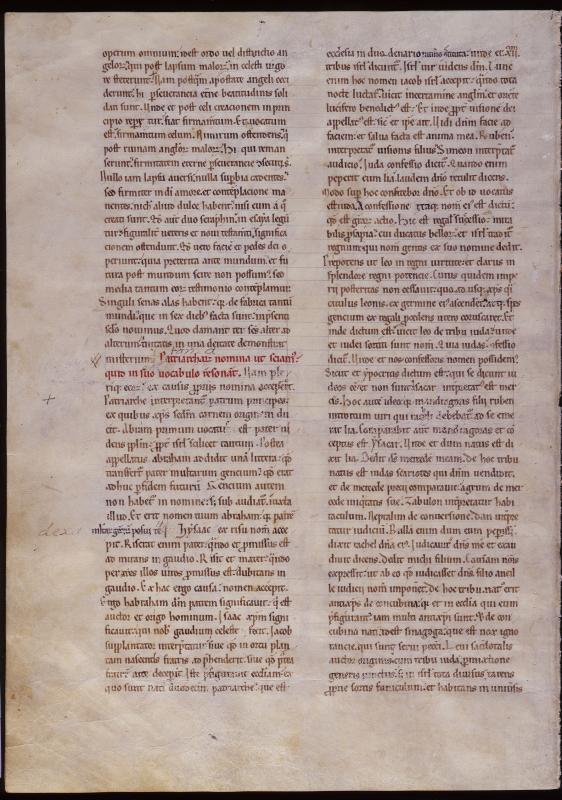 operum omnium. idest ordo uel distinctio an
gelorum qui post lapsum malorum in celesti uigo
re steterunt. Nam postquam apostate angeli ceci
derunt. hi perseuerantia eterne beatitudinis soli
dati sunt. Unde et post celi creacionem in prin
cipio
est. firmamentum celum. Nimirum ostendens quod
post ruinam angelorum malorum. Hi qui reman
serunt. firmitatem eterne perseuerancie
Nullo iam lapsu auersi. nulla superbia cadentes.
sed firmiter in dei amore et contemplacione ma
nentes. nichil aliud dulce habent. nisi eum a quo
creati sunt. duo seraphin. in esaya legun
tur. figuraliter ueteris et noui testamenti significa
cionem ostendunt. uero faciem et pedes dei o
periunt. quia preterita ante mundum. et fu
tura post mundum scire non possumus. sed
media tantum eorum testimonio contemplamur.
Singuli senas alas habent. quia de fabrica tantum
mundi. que in sex diebus facta sunt. in presenti
seculo nouimus. Quod clamant ter sanctus alter ad
alterum. trinitatis in una deitate demonstrat
misterium. Patriarcharum nomina ut sciantur
quid in suo uocabulo resonant. Nam ple
rique eorum ex causis propriis nomina acceperunt.
Patriarche interpretantur patrum principes.
ex quibus christus secundum carnem originem du
cit. Abram primum uocatus est pater ui
dens populum. propter israel scilicet tantum. Postea
appellatus abraham. addidit una littera. quod
transfertur pater multarum gencium. quod erat
adhuc per fidem futurum. Gencium autem
non habetur in nomine. sed subauditur. iuxta
illud. Et erit nomen tuum abraham. quia patrem
multarum gencium posui te. Hysaac ex risu nomen acce
pit. Riserat enim pater. quando ei promissus est
admirans in gaudio. Risit et mater. quando
per tres illos uiros promissus est. dubitans in
gaudio. Ex hac ergo causa. nomen accepit.
Ergo habraham deum patrem significauit. qui est
auctor et origo hominum. Isaac christum signi
ficauit. qui nobis gaudium celeste fecit. Iacob
supplantator interpretatur. siue quod in ortu plan
tam nascentis fratris apprehenderit. siue quod postea
fratrem arte deceperit. Iste prefigurauit ecclesiam. ex
quo sunt nati duodecim patriarche. que est
ecclesia in duodenario numero constituta. unde et XII
tribus israel dicuntur. Israel uir uidens deum. Tunc
enim hoc nomen iacob israel accepit. quando tota
nocte luctatus uicit in certamine angelum. et oriente
lucifero benedictus est. Et inde propter uisione dei
appellatus est. sic et ipse ait. Uidi deum facie ad
faciem. et salua facta est anima mea. Ruben
interpretatur uisionis filius. Simeon interpretatur
audicio. Iuda confessio dicitur. Quando enim
peperit eum lia. laudem domino retulit dicens.
Modo super hoc confitebor domino. Et ob id uocatus
est iuda. A confessione itaque nomen eius est dictum.
quod est graciarum actio. Hic est regalis successio. mira
bilis prosapia. cui ducatus bellorum. et israelitarum
regnum. qui nomen gentis ex suo nomine dedit.
Prepotens ut leo in regni uirtute. et clarus in
splendore regni potencie. Cuius quidem impe
rii posteritas non cessauit. quo adusque christus qui
catulus leonis. ex germine eius ascenderet. atque ipse
gencium ex regali prodiens utero coruscaret. Et
inde dictum est. uicit leo de tribu iuda. unde
et iudei sortiti sunt nomen. Quia iudas confessio
dicitur. Unde et nos confessoris nomen possidemus.
Sicut et ypocritis dictum est. qui se dicunt iu
deos esse et non sunt. Isacar interpretatur est mer
cis. Hoc autem ideo. quia mandragoris filii ruben
introitum uiri qui rachel debebatur ad se eme
rat lia. Comparabit autem mandragoras et con
ceptus est Ysacar. Unde et dum natus est di
xit lia. Dedit deus mercede meam. de hac tribu
natus est iudas scariotis qui dominum uendidit.
et de mercede precii comparauit agrum de mer
cede iniquitatis sue. Zabulon interpretatur habi
taculum. Neptalim de conuersione. dan interpre
tatur iudicium. Balla enim dum eum peperisset
dixit rachel domina eius. Iudicauit deus me et exau
diuit dicens. dedit michi filium. Causam nominis
expressit. ut ab eo quod iudicasset deus. filio ancil
le iudicii nomen imponeret. de hoc tribu nascetur erit
antichristus de concubina. quia et in ecclesia qui eum
prefigurant. iam multi antichristi sunt. de con
cubina nati. idest synagoga. que est nox igno
rancie. qui sunt serui peccati. Leui sacerdotalis
auctor originis cum tribu iuda proximatione
generis iunctus. sed in israel tota diuersus. carens
proprie sortis funiculum. et habitans in uniuersis